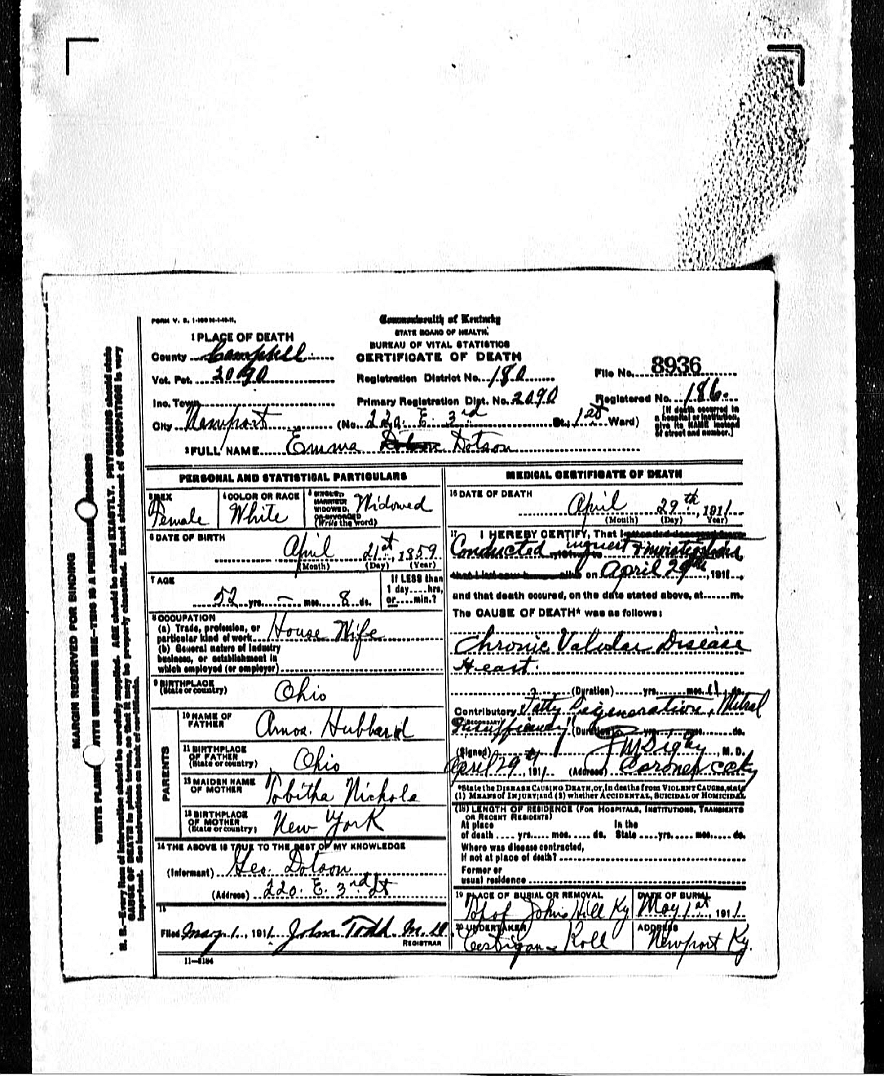 FORM V. S. 1-
Commonwealth of Kentucky
STATE BOARD OF HEALTH.
BUREAU OF VITAL STATISTICS
CERTIFICATE OF DEATH
1 PLACE OF DEATH
County Campbell
Vot. Pct. 2090
Registration District No. 180
File No. 8936
Inc. Town
Primary Registration Dist. No. 2090
Registered No. 186
City Newport (No. 220. E. 3rd St., 1st Ward)
[If death occurred in a hospital or institution, give its NAME instead of street and number.]
2 FULL NAME Emma Dotson
PERSONAL AND STATISTICAL PARTICULARS
3 SEX Female
4 COLOR OR RACE White
5 SINGLE MARRIED WIDOWED, OR DIVORCED (Write the word) Widowed
6 DATE OF BIRTH April 21st, 1859
(Month) (Day) (Year)
7 AGE 52 yrs. – mos. 8 ds.
If LESS than 1 day....hrs, or....min.?
8 OCCUPATION
(a) Trade, profession, or particular kind of work House Wife
(b) General nature of industry business, or establishment in which employed (or employer)
9 BIRTHPLACE (State or country) Ohio
PARENTS
10 NAME OF FATHER Amos. Hubbard
11 BIRTHPLACE OF FATHER (State or country) Ohio
12 MAIDEN NAME OF MOTHER Tobitha Nichols
13 BIRTHPLACE OF MOTHER (State or country) New York
14 THE ABOVE IS TRUE TO THE BEST OF MY KNOWLEDGE
(Informant) Geo. Dotson
(Address) 220. E. 3rd St
15
Filed May 1, 1911 John Todd M. D
REGISTRAR
11—3184
MEDICAL CERTIFICATE OF DEATH
16 DATE OF DEATH April 29th, 1911
(Month) (Day) (Year)
17 I HEREBY CERTIFY, That
Conducted inquest
on April 29th, 191
and that death occurred, on the date stated above, at m.
The CAUSE OF DEATH* was as follows:
Chronic Valvular Disease
Heart.
(Duration) yrs. mos. ds.
Contributory Fatty Degeneration, Mitral
(SECONDARY) Insufficiency (Duration) mos. ds.
(Signed) M. D.
April 29th, 1911 (Address) Coroner
*State the DISEASE CAUSING DEATH, or, in deaths from VIOLENT CAUSES, state (1) MEANS OF INJURY; and (2) whether ACCIDENTAL, SUICIDAL or HOMICIDAL.
(18) LENGTH OF RESIDENCE (FOR HOSPITALS, INSTITUTIONS, TRANSIENTS OR RECENT RESIDENTS)
At place of death yrs. mos. ds. In the State yrs. mos. ds.
Where was disease contracted, If not at place of death?
Former or usual residence
19 PLACE OF BURIAL OR REMOVAL Johns Hill Ky
DATE OF BURIAL May 1st, 1911
20 UNDERTAKER Roll
ADDRESS Newport Ky.
MARGIN RESERVED FOR BINDING
WRITE PLAINLY WITH UNFADING INK—THIS IS A PERMANENT
N. B.—Every item of information should be carefully supplied. AGE should be stated EXACTLY. PHYSICIANS should state
CAUSE OF DEATH in plain terms, so that it may be properly classified. Exact statement of OCCUPATION is very
important. See instructions on back of certificate.